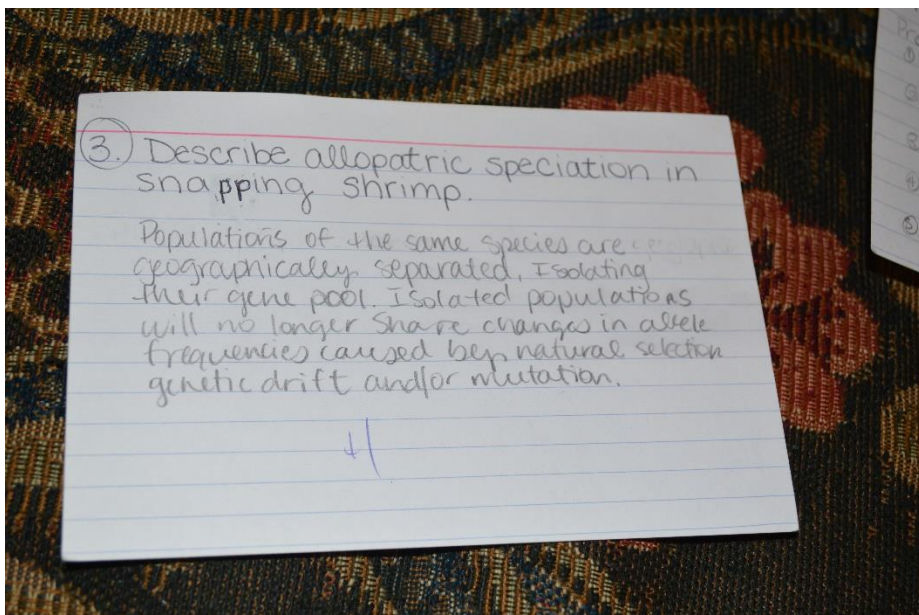 3. Describe allopatric speciation in
snapping shrimp.
Populations of the same species are
geographically separated, Isolating
their gene pool. Isolated populations
will no longer share changes in allele
frequencies caused by natural selection
genetic drift and/or mutation.
+1
①
②
③
④
⑤